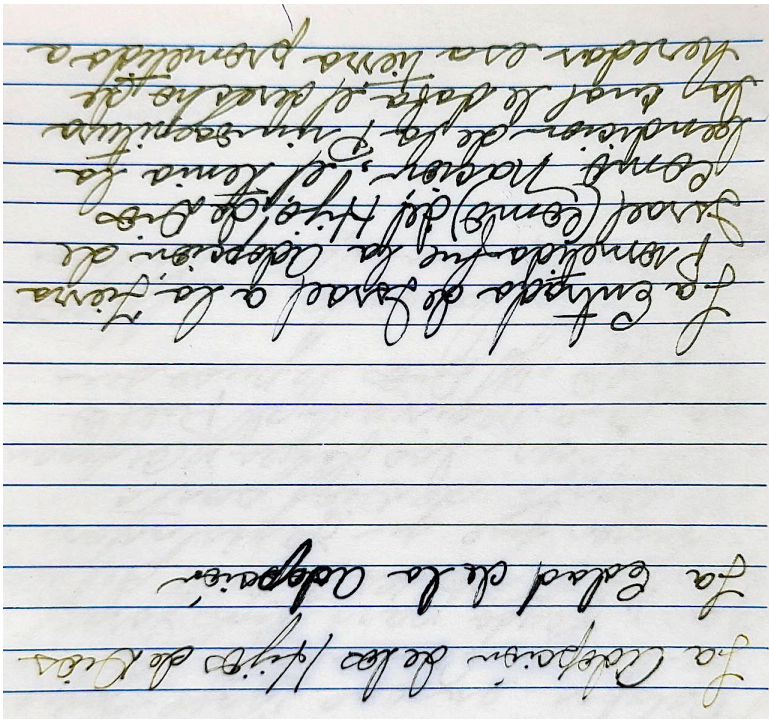 La Adopción de los Hijos de Dios
La Edad de la Adopción
La Entrada de Israel a la Tierra
prometida fue la adopción de
Israel (como) del Hijo, de Dios
Como nación, el tenia la
bendicion de la Primogenitura
la cual le daba el derecho de
heredar esa tierra prometida a